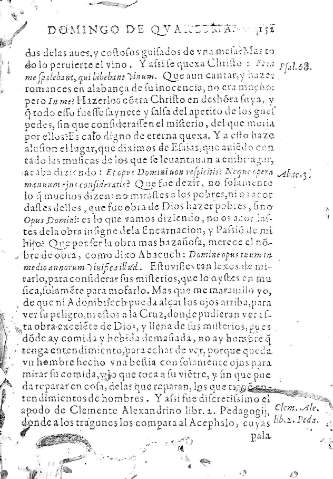 DOMINGO DE QVARESMA 152
das de las aues, y costosos guisados de vna mesa? Mas to
do lo peruierte el vino. Y assi se quexa Christo: Psal. 68.
me psalebant, qui bibebant vinum. Que aun cantar, y hazer
romances en alabança de su inocencia, no era mucho:
pero In me? Hazerlos cõtra Christo en deshõra suya, y
q̃ todo esso fuesse saynete y salsa del apetito de los gues
pedes, sin que considerassen el misterio, del que moria
por ellos? Es caso digno de eterna quexa. Y a esto haze
alusion el lugar, que diximos de Esaias, que auiẽdo con
tado las musicas de los que se leuantauan a embriagar,
acaba diziendo: Et opus Domini non respicitis: Neque opera
manuum eius consideratis? Que fue dezir, no solamente
lo q̃ muchos dizen: no mirastes los pobres, ni os acor
dastes delles, que fue obra de Dios hazer pobres, sino
Opus Domini: es lo que vamos diziendo, no os acordas
tes de la obra insigne de la Encarnacion, y Passiõ de mi
hijo? Que por ser la obra mas hazañosa, merece el nõ
bre de obra, como dixo Abacuch: Domine opus tuum in
medio annorum viuifica illud. Estuuistes tan lexos de mi-
rarlo, para considerar sus misterios, que lo oystes en mu
sica, solamẽte para mofarlo. Mas que me marauillo yo,
de que ni A
los ojos arriba, para
ver su peligro, ni estos a la Cruz, donde pudieran ver es
ta obra excelẽte de Dios, y llena de sus misterios, pues
dõde ay comida y bebida demasiada, no ay hombre q̃
tenga entendimiento, para echar de ver, porque queda
vn hombre hecho vna bestia con solamente ojos para
mirar su comida, y lo que toca a su viẽtre, y sin que pue
da reparar en cosa, de las que reparan, los que
tendimientos de hombres. Y assi fue discretissimo el
apodo de Clemente Alexandrino libr. 2. Pedagogij, Clem. Ale.
donde a los tragones los compara al Acephalo, cuyas lib. 2. Peda.
pala